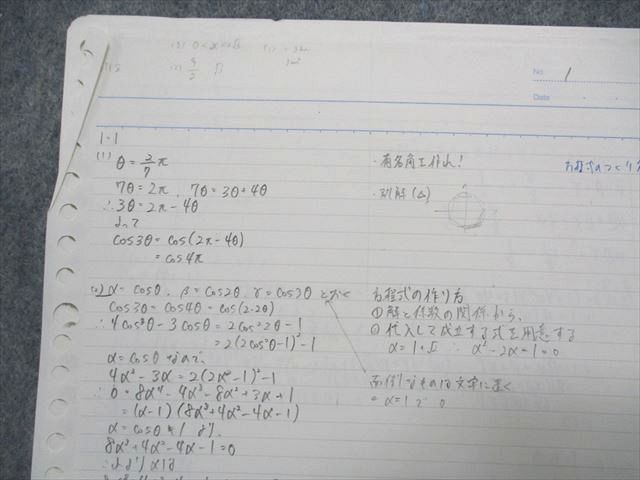 (2) 0<x<√2
No. 1
Date
1-1
(1) θ = 2/7 π
7θ = 2π, 7θ = 3θ + 4θ
∴ 3θ = 2π - 4θ
よって
cos3θ = cos(2π - 4θ)
= cos4π
(2) α = cosθ, β = cos2θ, γ = cos3θ とおく
cos3θ = cos4θ = cos(2・2θ)
∴ 4cos³θ - 3cosθ = 2cos²2θ - 1
= 2(2cos²θ - 1)² - 1
α = cosθ なので
4α³ - 3α = 2(2α² - 1)² - 1
∴ 0 = 8α⁴ - 4α³ - 8α² + 3α + 1
= (α-1)(8α³ + 4α² - 4α - 1)
α = cosθ ≠ 1 より、
8α³ + 4α² - 4α - 1 = 0
・有名角を作れ!
・別解 (△)
方程式の作り方
① 解と係数の関係から、
② 代入して成立する式を用意する
α = 1 + √2 ∴ α² - 2α - 1 = 0
面倒なものは文字に置く